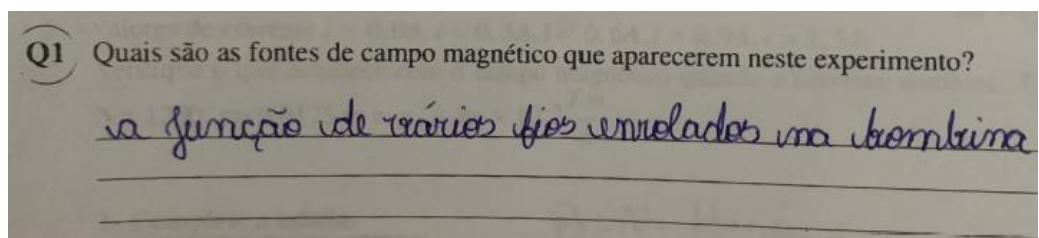 Q1 Quais são as fontes de campo magnético que aparecerem neste experimento?
a função de vários fios enrolados na bombina